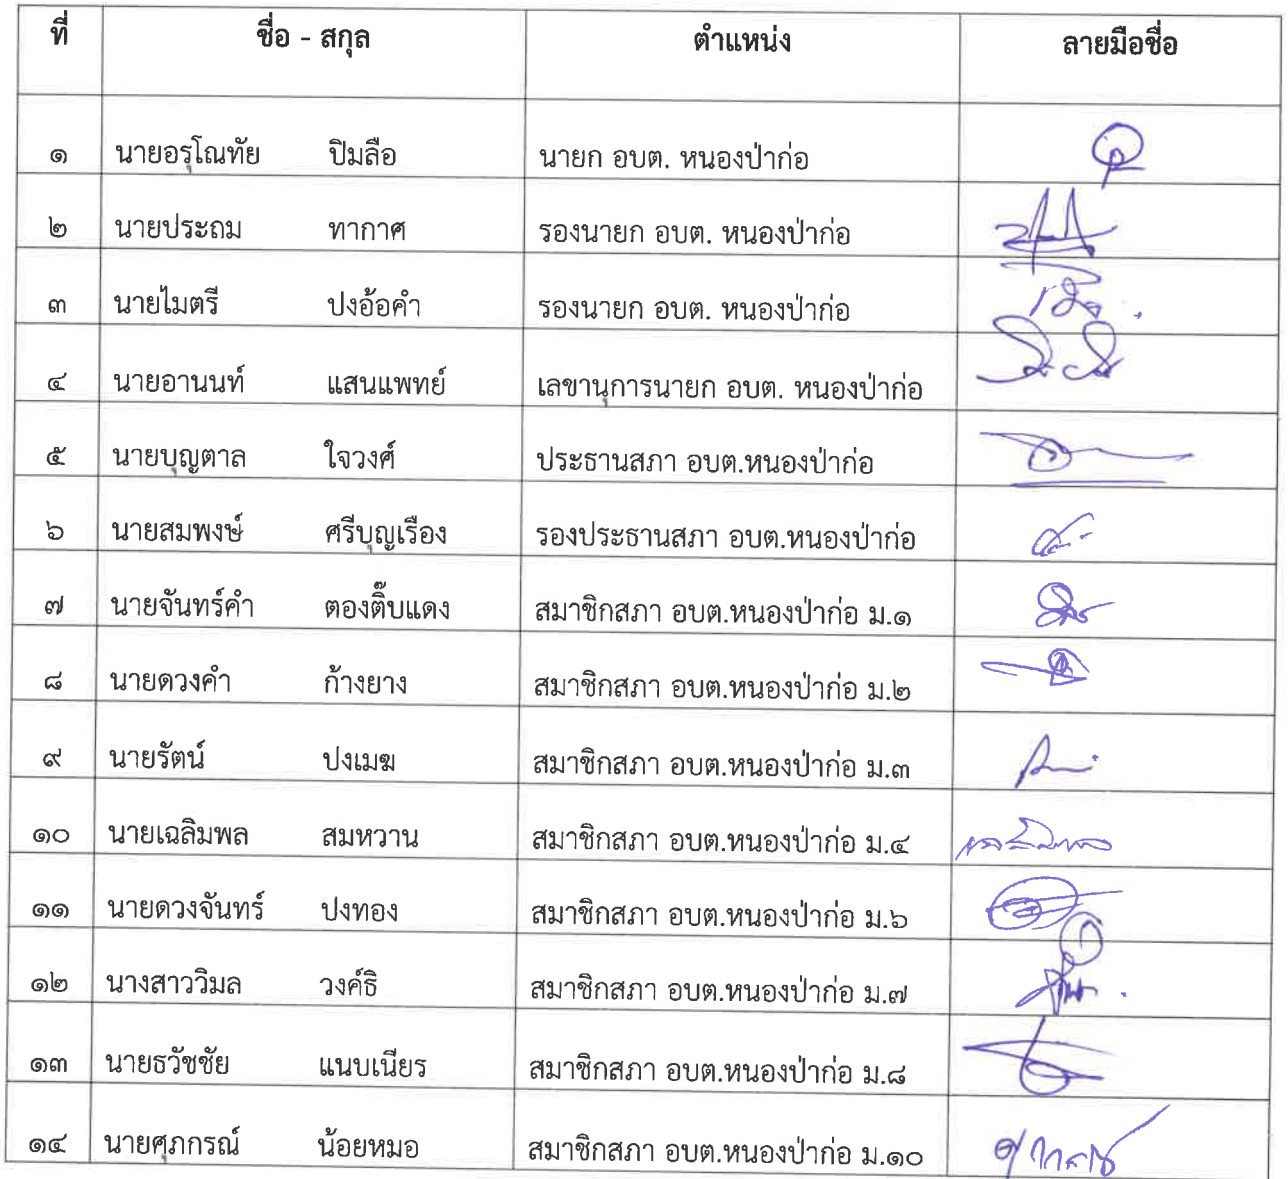 ที่ ชื่อ - สกุล ตำแหน่ง ลายมือชื่อ
๑ นายอรุโณทัย ปิมลือ นายก อบต. หนองป่าก่อ
๒ นายประถม ทากาศ รองนายก อบต. หนองป่าก่อ
๓ นายไมตรี ปงอ้อคำ รองนายก อบต. หนองป่าก่อ
๔ นายอานนท์ แสนแพทย์ เลขานุการนายก อบต. หนองป่าก่อ
๕ นายบุญตาล ใจวงศ์ ประธานสภา อบต.หนองป่าก่อ
๖ นายสมพงษ์ ศรีบุญเรือง รองประธานสภา อบต.หนองป่าก่อ
๗ นายจันทร์คำ ตองติ๊บแดง สมาชิกสภา อบต.หนองป่าก่อ ม.๑
๘ นายดวงคำ ก้างยาง สมาชิกสภา อบต.หนองป่าก่อ ม.๒
๙ นายรัตน์ ปงเมฆ สมาชิกสภา อบต.หนองป่าก่อ ม.๓
๑๐ นายเฉลิมพล สมหวาน สมาชิกสภา อบต.หนองป่าก่อ ม.๔
๑๑ นายดวงจันทร์ ปงทอง สมาชิกสภา อบต.หนองป่าก่อ ม.๖
๑๒ นางสาววิมล วงค์ธิ สมาชิกสภา อบต.หนองป่าก่อ ม.๗
๑๓ นายธวัชชัย แนบเนียร สมาชิกสภา อบต.หนองป่าก่อ ม.๘
๑๔ นายศุภกรณ์ น้อยหมอ สมาชิกสภา อบต.หนองป่าก่อ ม.๑๐